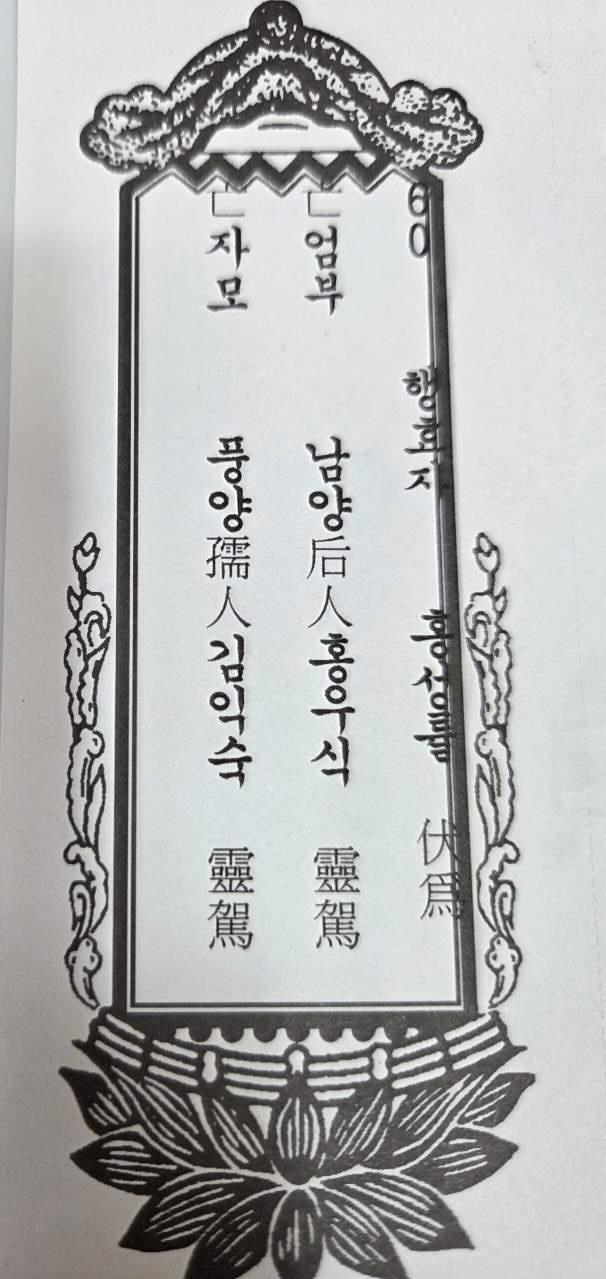 60 행효자 홍성률 伏爲
亡 엄부 남양后人홍우식 靈駕
亡 자모 풍양孺人김익숙 靈駕